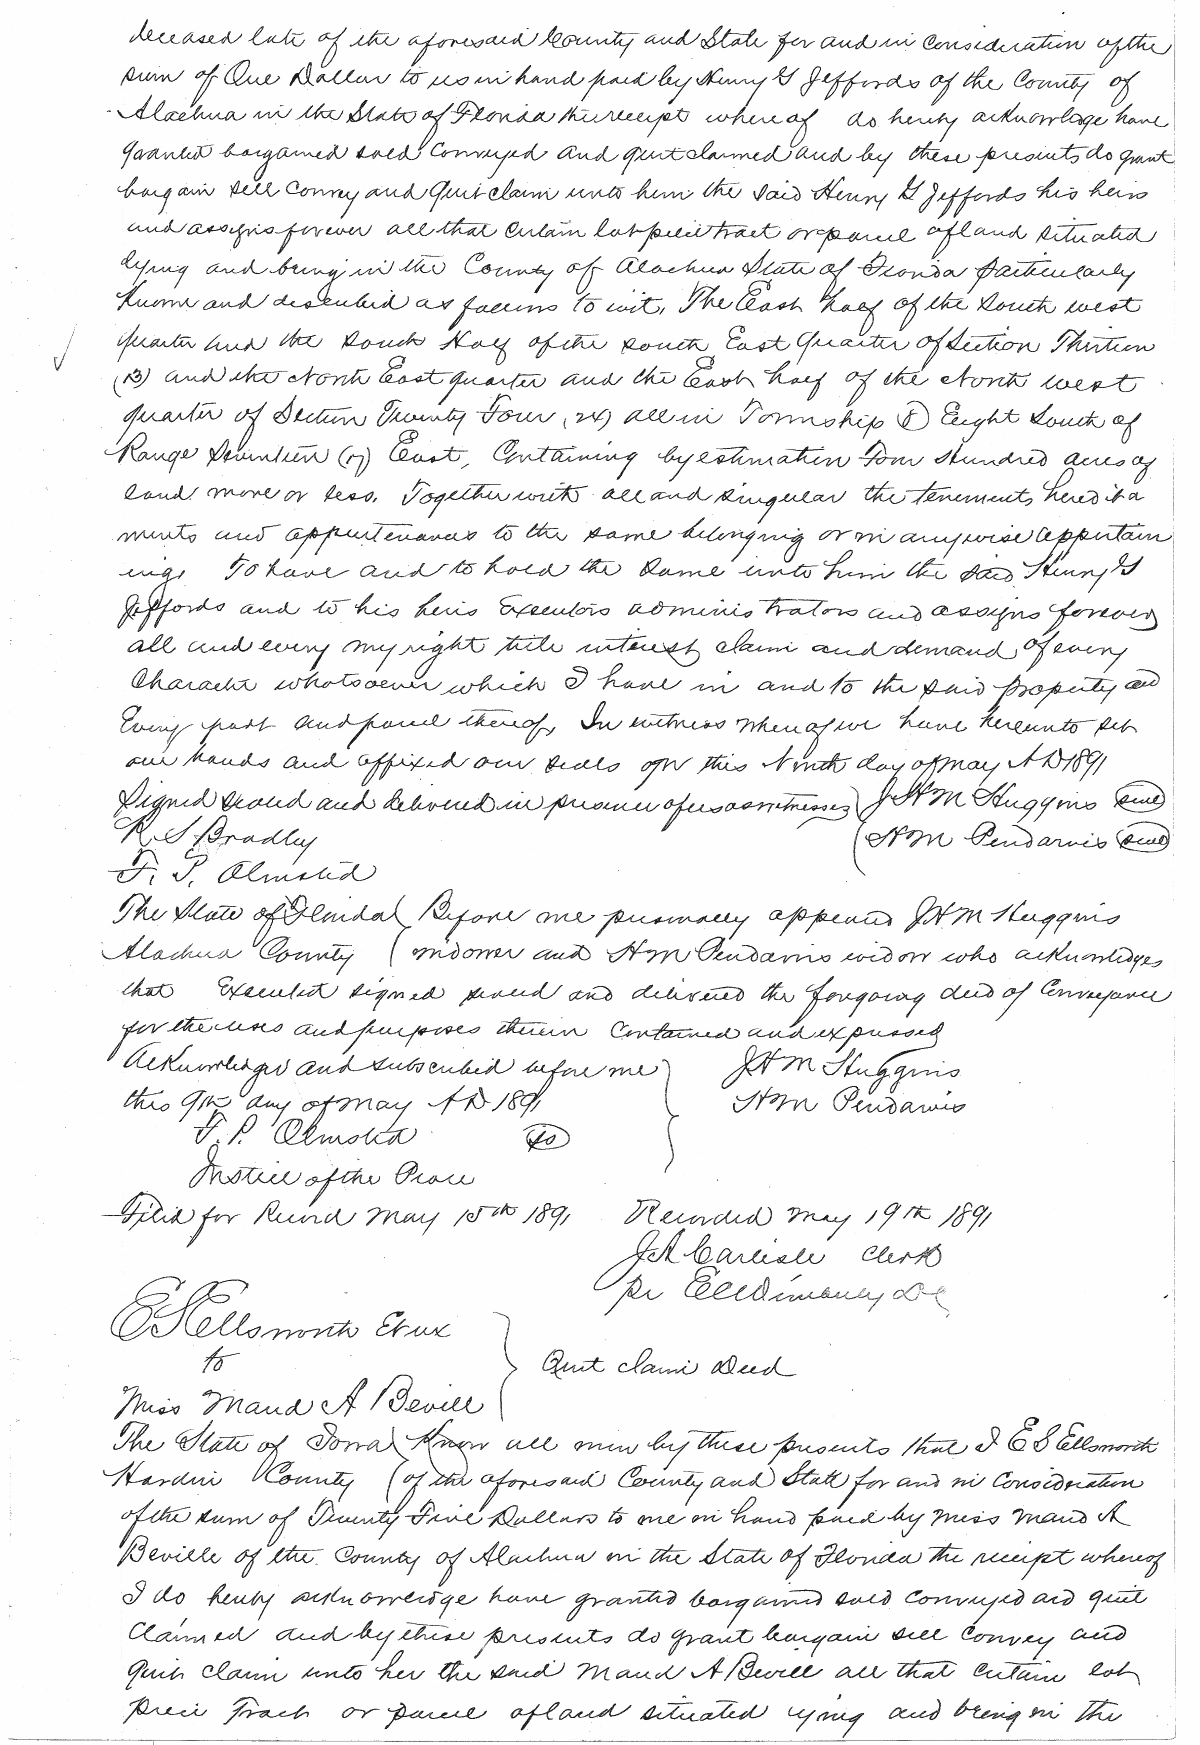 deceased late of the aforesaid County and State for and in Consideration of the
sum of One Dollar to us in hand paid by Henry G Jeffords of the County of
Alachua in the State of Florida the receipt where of do hereby acknowledge have
granted bargained sold Conveyed and quit claimed and by these presents do grant
bargain sell Convey and Quit claim unto him the said Henry G Jeffords his heirs
and assigns forever all that Certain lot piece tract or parcel of land situated
lying and being in the County of Alachua State of Florida particularly
Known and described as follows to wit, The East half of the South west
quarter and the South Half of the South East Quarter of Section Thirteen
(13) and the North East quarter and the East half of the North west
quarter of Section Twenty Four (24) all in Township (8) Eight South of
Range Seventeen (17) East, Containing by estimation Four Hundred acres of
land more or less. Together with all and singular the tenements heredita
ments and appurtenances to the same belonging or in anywise appertain
ing, To have and to hold the same unto him the said Henry G
Jeffords and to his heirs Executors administrators and assigns forever
all and every my right title interest claim and demand of every
Character whatsoever which I have in and to the said property and
Every part and parcel thereof, In witness whereof we have hereunto set
our hands and affixed our seals on this Ninth day of May A D 1891
Signed sealed and delivered in presence of us as witnesses J H M Huggins seal
R. S Bradley H M Pendarvis seal
F. P. Olmsted
The State of Florida Before me personally appeared J H M Huggins
Alachua County widower and H M Pendarvis widow who acknowledges
that Executed signed sealed and delivered the foregoing deed of Conveyance
for the uses and purposes therein Contained and expressed
Acknowledged and subscribed before me J H M Huggins
this 9th day of May A D 1891 H M Pendarvis
F. P. Olmsted
Justice of the Peace
Filed for Record May 15th 1891 Recorded May 19th 1891
J A Carlisle Clerk
pr DC
E S Ellsworth Et ux
to Quit claim Deed
Miss Maud A Bevill
The State of Iowa Know all men by these presents that I E S Ellsworth
Hardin County of the aforesaid County and State for and in Consideration
of the sum of Twenty Five Dollars to me in hand paid by Miss Maud A
Beville of the County of Alachua in the State of Florida the receipt whereof
I do hereby acknowledge have granted bargained sold Conveyed and quit
Claimed and by these presents do grant bargain sell Convey and
Quit claim unto her the said Maud A Bevill all that Certain lot
piece Tract or parcel of land situated lying and being in the